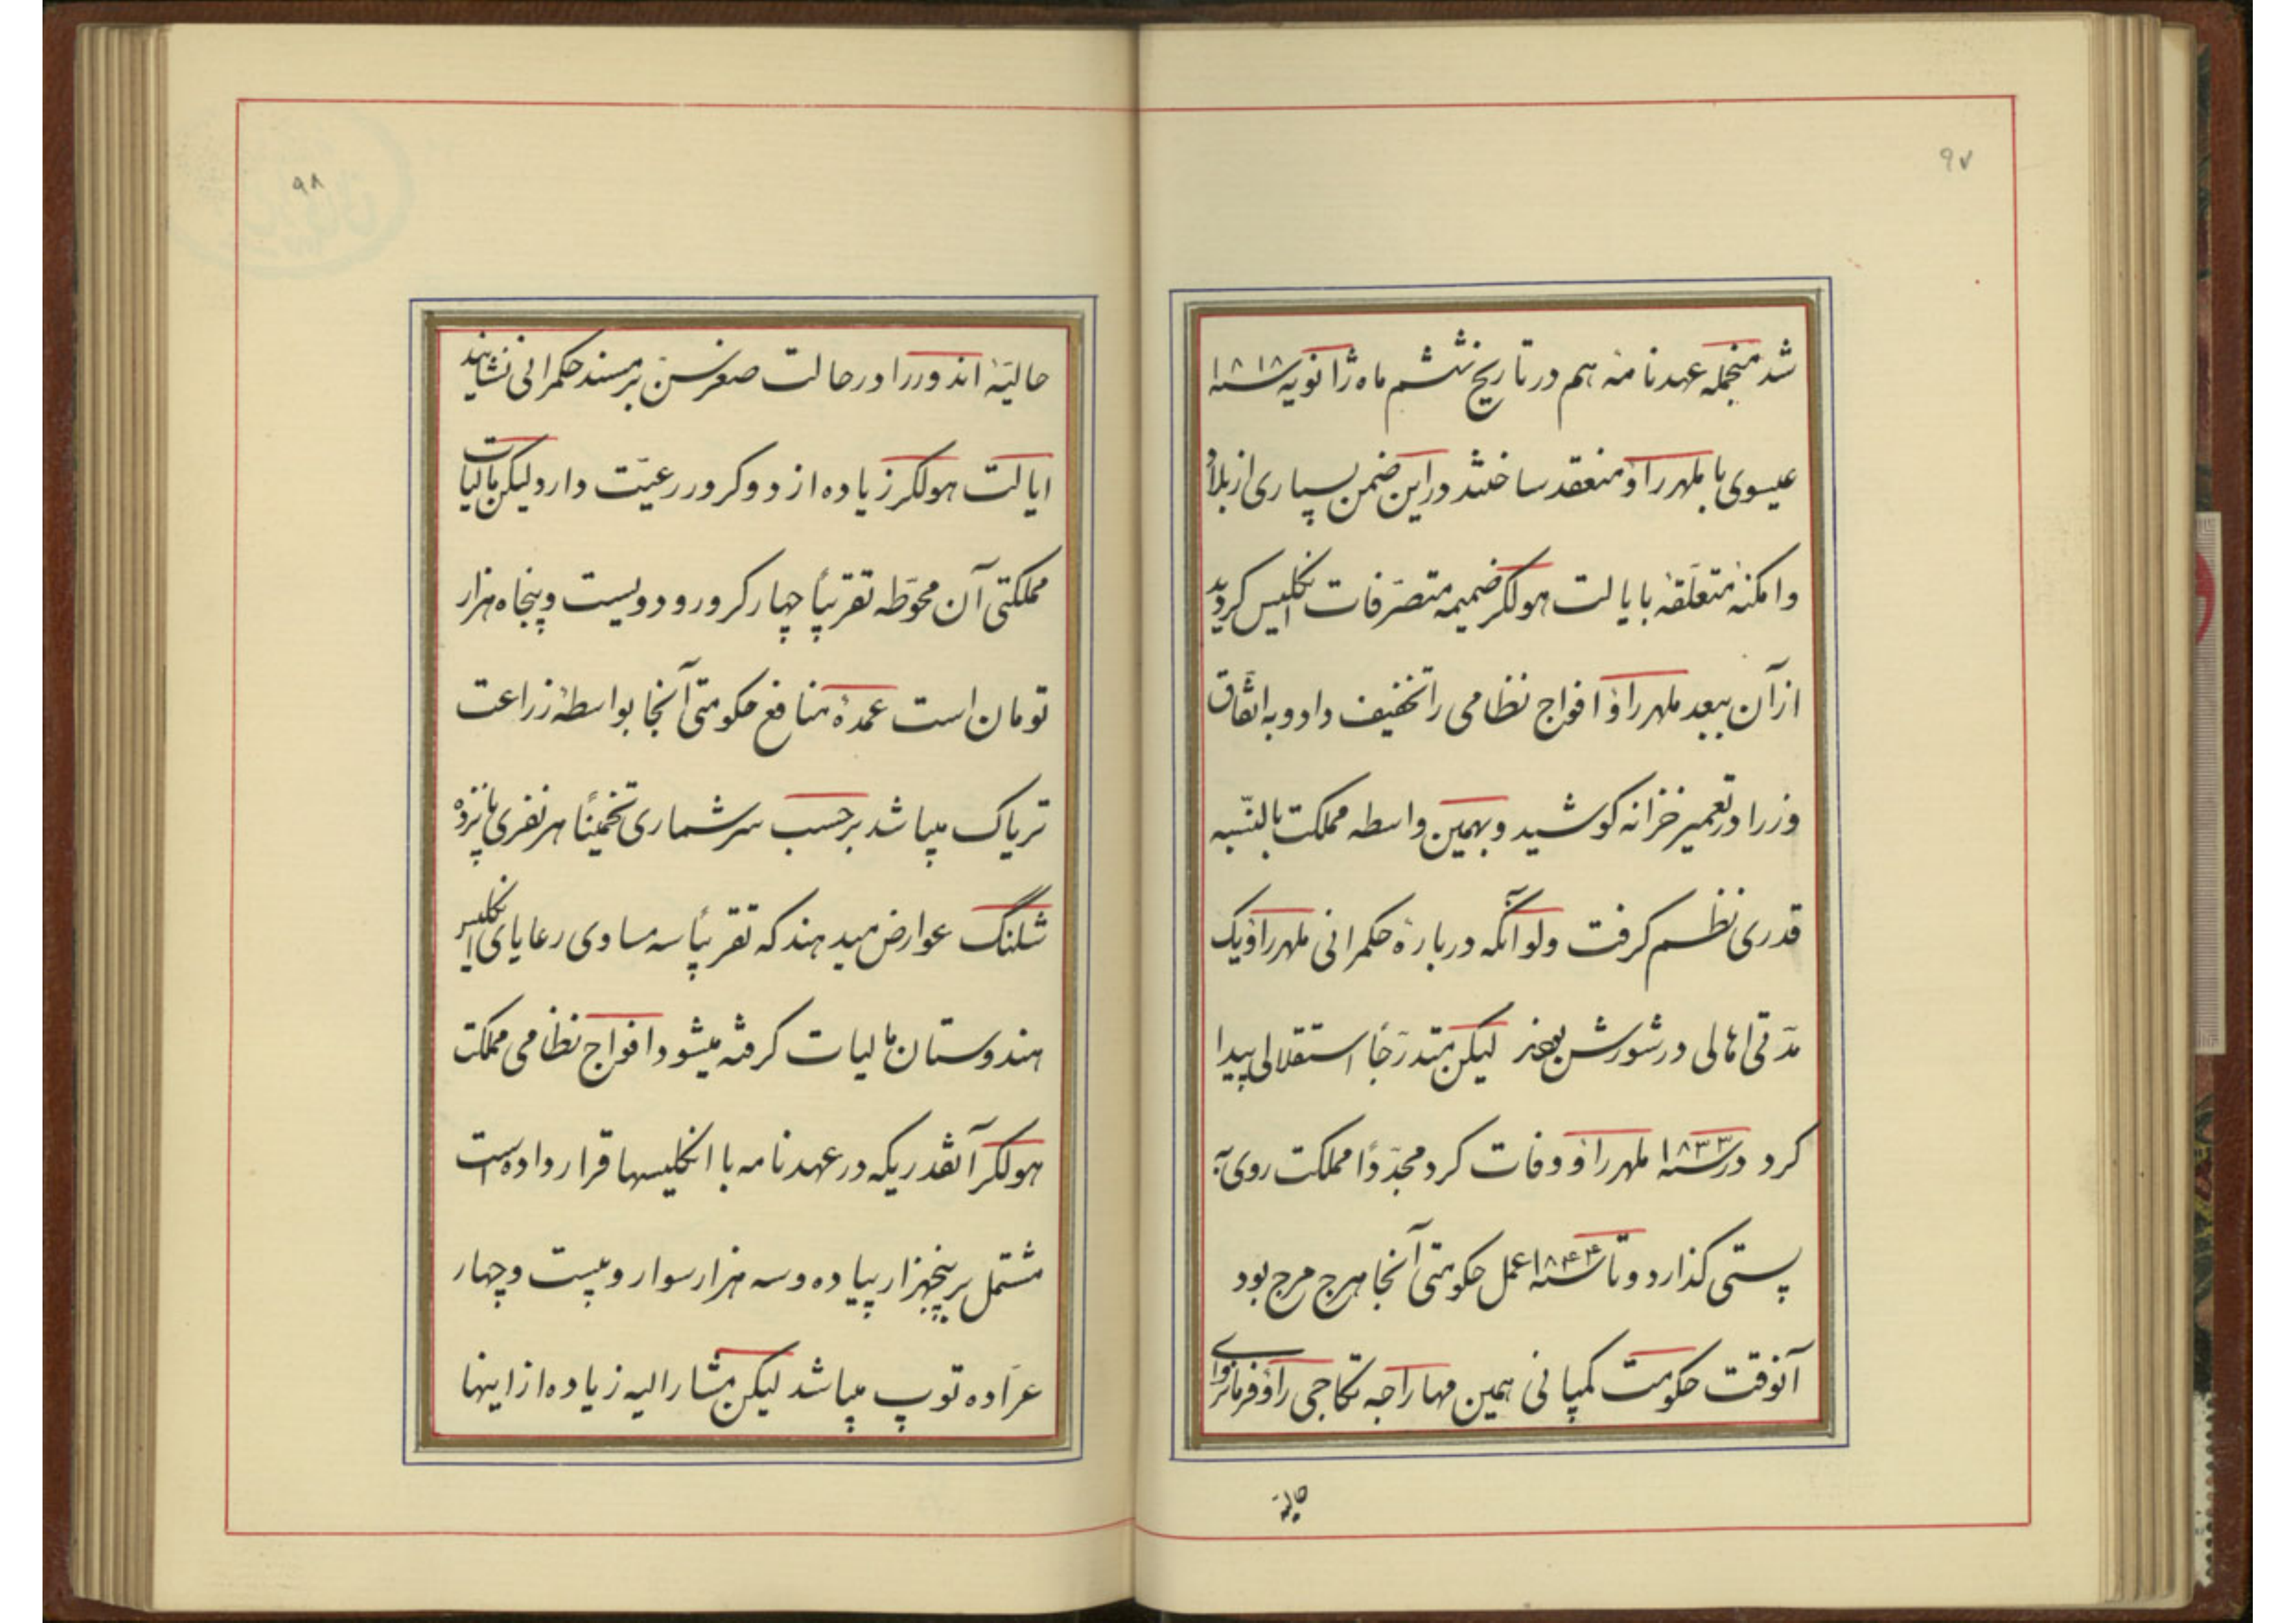 ۹۷
شد منجمله عهدنامهٔ هم در تاریخ ششم ماه ژانویه سنه ۱۸۱۸
عیسوی با ملهر راؤ منعقد ساختند در این ضمن بسیاری از بلاد
و امکنهٔ متعلّقهٔ بایالت هولکر ضمیمه متصرّفات انکلیس کردید
از آن ببعد ملهر راؤ افواج نظامی را تخفیف داد و به اتّفاق
وزرا در تعمیر خزانه کوشید و بهمین واسطه مملکت بالنّسبه
قدری نظم کرفت ولو آنکه دربارهٔ حکمرانی ملهر راؤ یک
مدّتی اهالی در شورش بودند لیکن متدرّجاً استقلالی پیدا
کرد در سنه ۱۸۳۳ ملهر راؤ وفات کرد مجدّداً مملکت روی به
پستی کذارد و تا سنه ۱۸۴۴ عمل حکومتی آنجا هرج مرج بود
آنوقت حکومت کمپانی همین مهاراجه تکاجی راؤ فرمانروای
حالیهٔ
۹۸
حالیّهٔ اندور را در حالت صغر سنّ بر مسند حکمرانی نشانید
ایالت هولکر زیاده از دو کرور رعیّت دارد لیکن مالیات
مملکتی آن محوّطه تقریباً چهار کرور و دویست و پنجاه هزار
تومان است عمدهٔ منافع حکومتی آنجا بواسطهٔ زراعت
تریاک میباشد بر حسب سرشماری تخمیناً هر نفری پانزده
شلنگ عوارض میدهند که تقریباً سه مساوی رعایای انکلیس
هندوستان مالیات کرفته میشود افواج نظامی مملکت
هولکر آنقدریکه در عهدنامه با انکلیسها قرار داده است
مشتمل بر پنجهزار پیاده و سه هزار سوار و بیست و چهار
عرّاده توپ میباشد لیکن مشارالیه زیاده از اینها